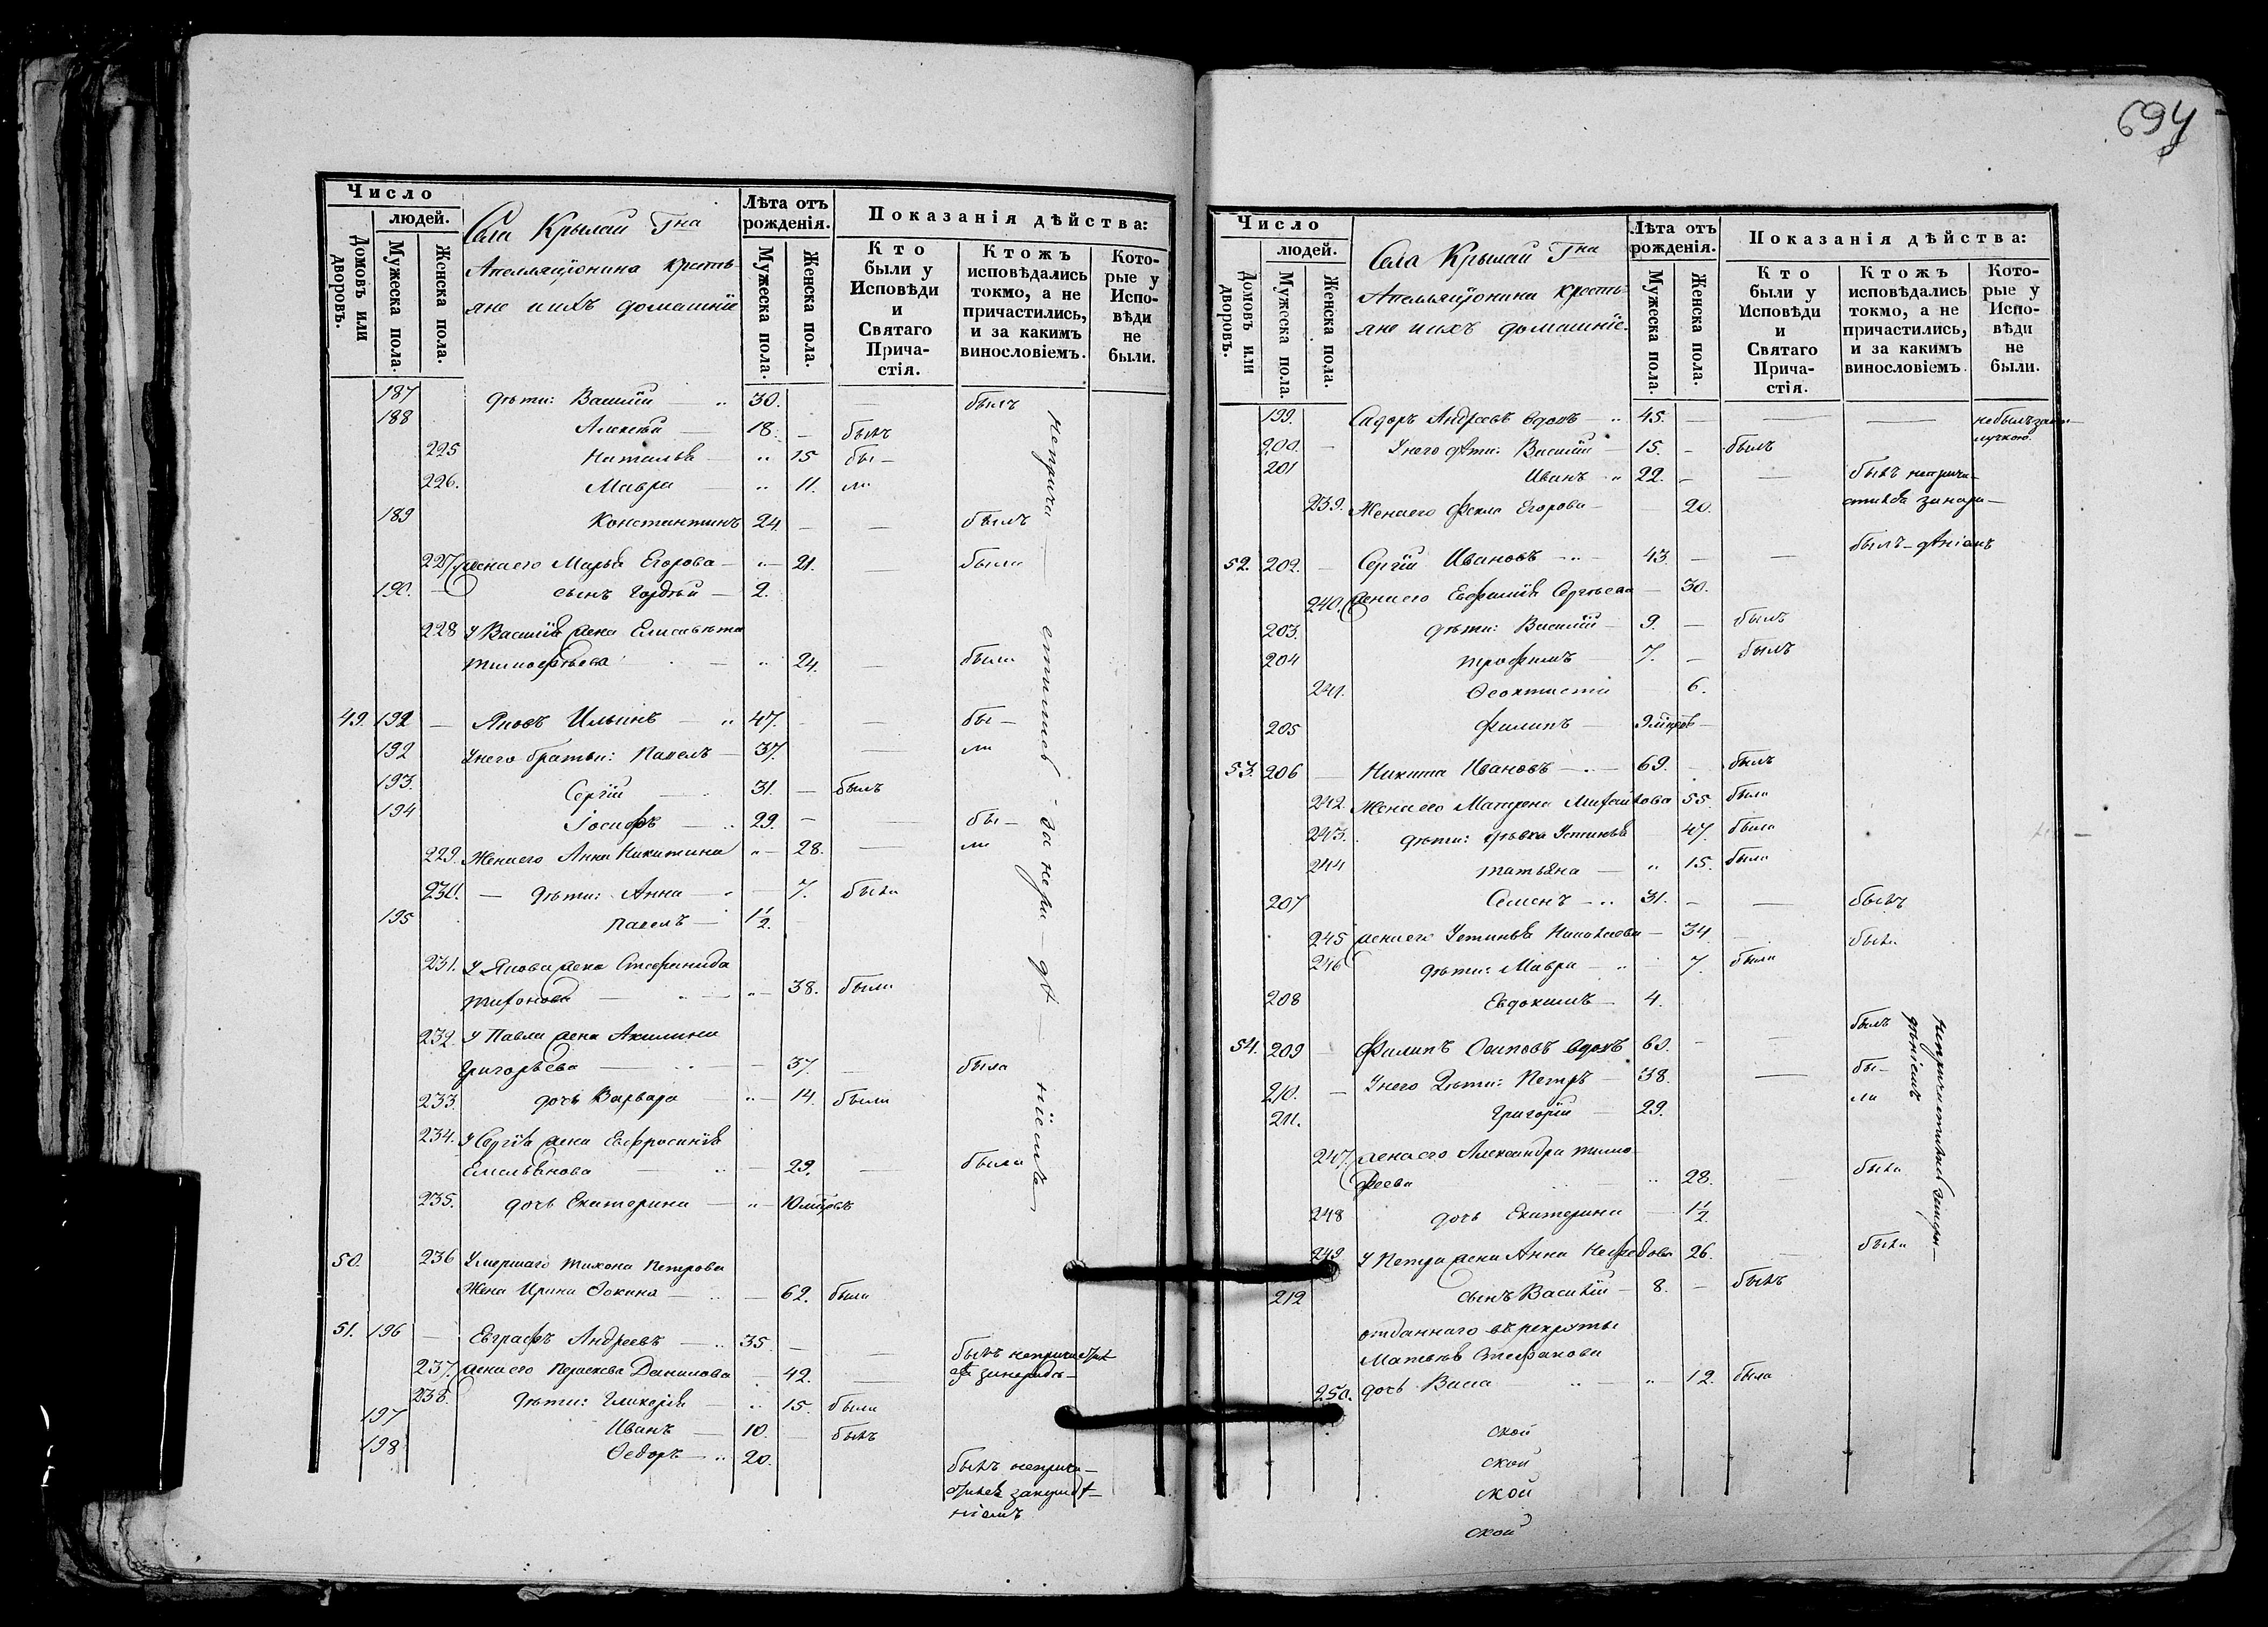 694
Число
людей.
Домовъ или дворовъ.
Мужеска пола.
Женска пола.
Села Крылай Гна
Апелляціонина кресть
яне и ихъ домашніе
Лѣта отъ рожденія.
Мужеска пола.
Женска пола.
Показанія дѣйства:
Кто были у Исповѣди и Святаго Прича-стія.
Ктожъ исповѣдались токмо, а не причастились, и за какимъ винословіемъ.
Кото-рые у Испо-вѣди не были.
187 дѣти: Василій — 30. — былъ
188 Алексѣй — 18. — былъ
225 Наталья — 15 бы-
226. Мавра — 11. ли
189 Константинъ 24 — — былъ
227. жена его Марья Егорова — 21. — была
190. — сынъ Гордѣй — 2.
228 У Василія жена Елисавета
Тимофѣева — 24. — была
49. 192 — Яковъ Ильинъ — 47. — — бы-
192 У него братьи: Павелъ — 37. — ли
193. Сергій — 31. — былъ
194 Іосифъ — 29. — — бы-
229. Жена его Анна Никитина — 28. — ли
230. — дѣти: Анна — 7. была
195 Павелъ — 1½
231. У Якова жена Стефанида
Тихонова — 38. была
232. У Павла жена Акилина
Григорьева — 37. — была
233. дочь Варвара — 14. была
234. У Сергія жена Евфросинія
Емельянова — 29. — была
235. дочь Екатерина —
50. 236 Умершаго Тихона Петрова
Жена Ирина Фокина — 62. была
51. 196 — Евграфъ Андреевъ — 35. — — былъ
237. жена его Параскева Данилова — 42. —
238. дѣти: Гликерія — 15. была
197 Иванъ — 10. — былъ
198 Ѳедоръ — 20. былъ неприча-
ніемъ
неприча — стились за нера — дѣ — ніемъ
Число
людей.
Домовъ или дворовъ.
Мужеска пола.
Женска пола.
Села Крылай Гна
Апелляціонина кресть
яне и ихъ домашніе.
Лѣта отъ рожденія.
Мужеска пола.
Женска пола.
Показанія дѣйства:
Кто были у Исповѣди и Святаго Прича-стія.
Ктожъ исповѣдались токмо, а не причастились, и за какимъ винословіемъ.
Кото-рые у Испо-вѣди не были.
199. Сидоръ Андреевъ вдовъ — 45. — — — небылъ за от
лучкою.
200. — У него дѣти: Василій — 15. — былъ
201 Иванъ 22. — — былъ неприча-
239. Жена его Фекла Егорова — 20. стился за нера-
52. 202. — Сергій Ивановъ — 43. — — былъ дѣніемъ
240. жена его Евфимія Сергѣева — 30.
203. дѣти: Василій — 9. — былъ
204 Трофимъ — 7. — былъ
241. Ѳеоктиста 6.
205 Филипъ —
53. 206 — Никита Ивановъ — 69. — былъ
242. Жена его Матрена Михайлова 55. была
243. дѣти: дѣвка Устинья 47. была
244 Татьяна — 15. была
207 Семенъ — 31. — — былъ
245 жена его Устинья Николаева — 34. — была
246 дѣти: Мавра — 7. была
208 Евдокимъ — 4.
54. 209 — Филипъ Осиповъ вдовъ 60. — — былъ
210. — У него дѣти: Петръ — 38. — бы-
211. Григорій — 29. ли
247. жена его Александра Тимо
феева — 28. — была
248 дочь Екатерина — 1½
249 У Петра жена Анна 26. — была
212 сынъ Василій — 8. — былъ
отданнаго въ рекруты
Матвѣя Стефанова
250. дочь Васса — 12. была
непричастились за нера-
дѣніемъ
ской
ской
ской
ской